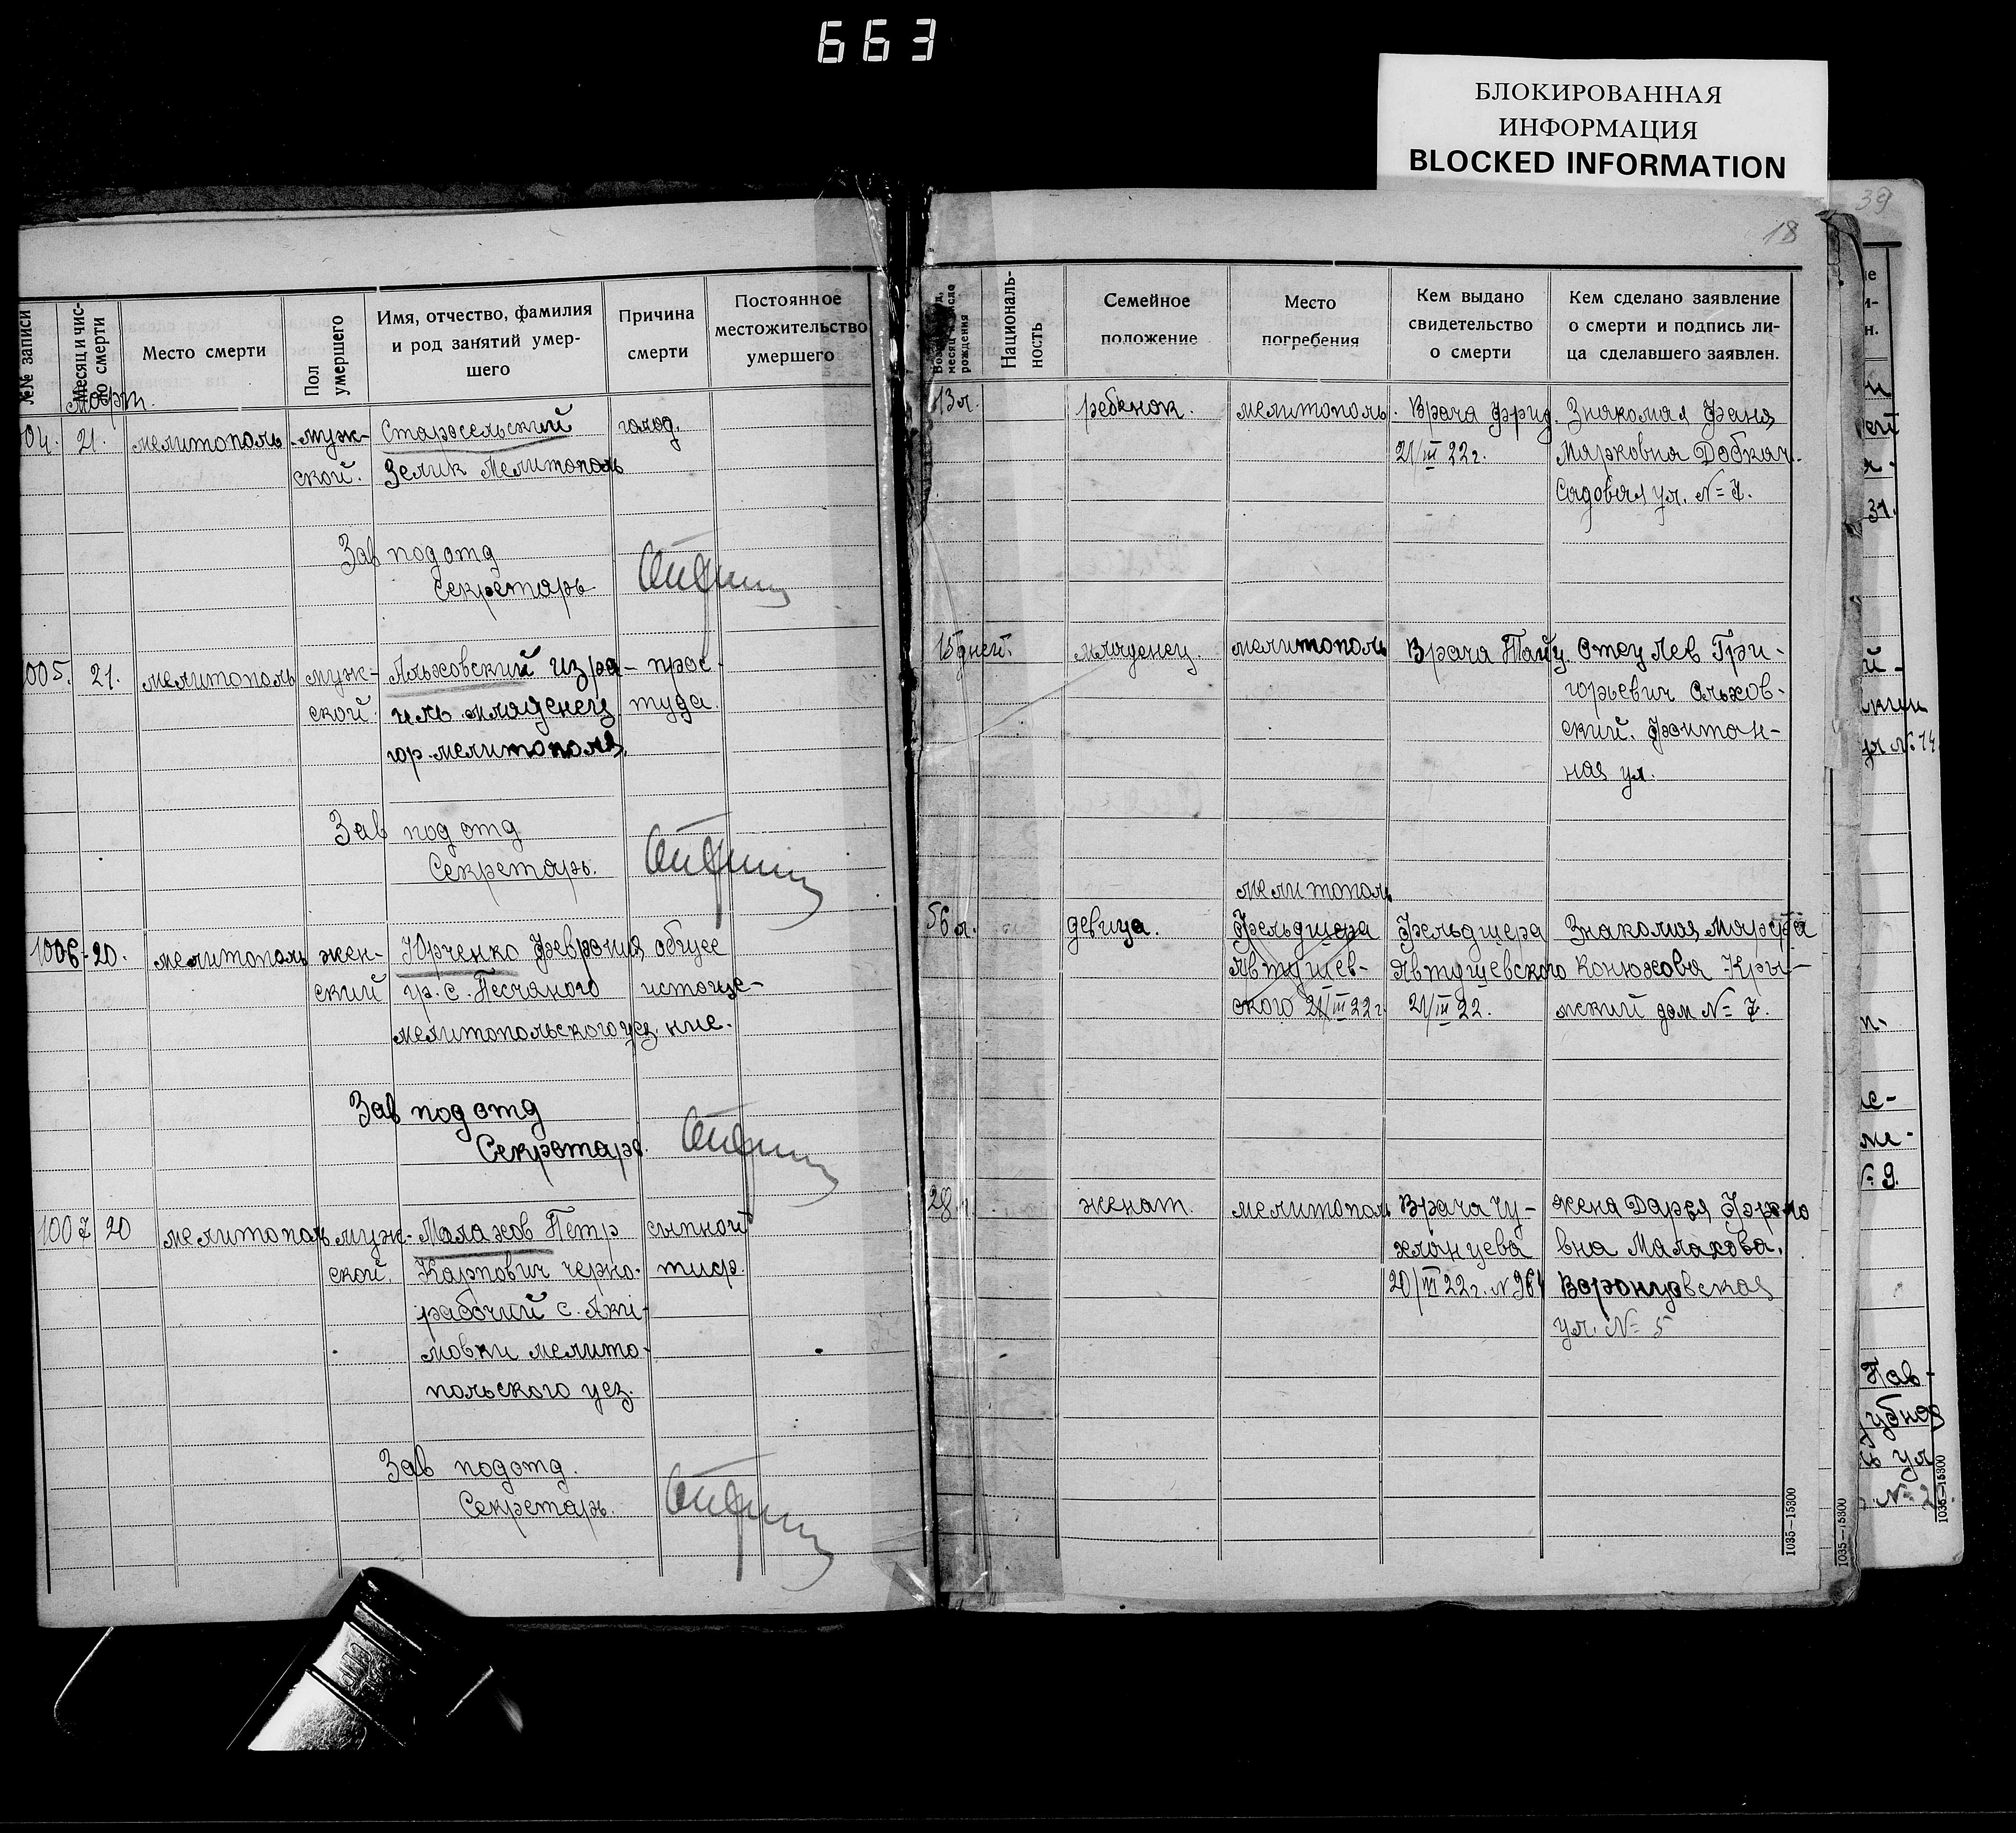 663
БЛОКИРОВАННАЯ
ИНФОРМАЦИЯ
BLOCKED INFORMATION
39
18
№№ записи
Месяц и чис-
ло смерти
Место смерти
Пол
умершего
Имя, отчество, фамилия
и род занятий умер-
шего
Причина
смерти
Постоянное
местожительство
умершего
март.
04.
21.
мелитополь
муж-
ской.
Старосельский
Зелик Мелитополь
голод.
Зав подотд
Секретарь
005.
21.
мелитополь
муж-
ской.
Альховский Изра-
иль младенец
гор. мелитополя.
прос-
туда.
Зав подотд
Секретарь.
1006.
20.
мелитополь
жен-
ский
Юрченко Феврония
гр. с. Песчаного
мелитопольского уез.
общее
истоще-
ние.
Зав подотд
Секретарь.
1007
20
мелитополь
муж-
ской.
Малахов Петр
Карпович черно-
рабочий с. Аки-
мовки мелито-
польского уез.
сыпной
тиф.
Зав подотд.
Секретарь.
месяц и число
рождения
Националь-
ность
Семейное
положение
Место
погребения
Кем выдано
свидетельство
о смерти
Кем сделано заявление
о смерти и подпись ли-
ца сделавшего заявлен.
13 л.
ребенок.
мелитополь.
Врача Фрид.
21/III 22г.
Знакомая Фаня
Марковна Добкач.
Садовая ул. № 7.
15 дней.
младенец.
мелитополь
Врача Тайц.
Отец Лев Гри-
горьевич Альхов-
ский. Фонтан-
ная ул.
56 л.
девица.
мелитополь
Фельдшера
Явтушев-
ского 21/III 22г.
Фельдшера
Явтушевского
21/III 22.
Знакомая Маруся
Конюхова Кры-
мский дом № 7.
28 л.
женат.
мелитополь
Врача Чу-
хланцева
20/III 22г. №
жена Дарья
вна Малахова.
Воронцовская
ул. № 5
1035–15300
1035–15300
31.
№ 14
№ 9.
Пав-
ул
№ 2.
1035–15300